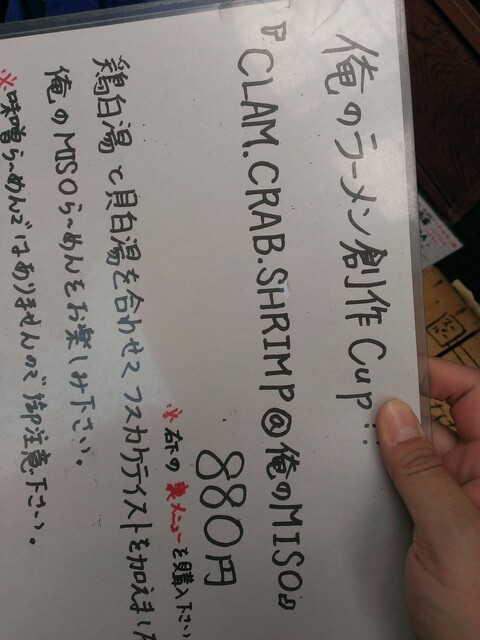 俺のラーメン創作Cup!!
『CLAM.CRAB.SHRIMP@俺のMISO』
880円
※右下の裏メニューを購入下さい
鶏白湯と貝白湯を合わせてフスカ テイストを加えました
俺のMISOらーめんをお楽しみ下さい。
※味噌らーめんではありませんので御注意下さい。